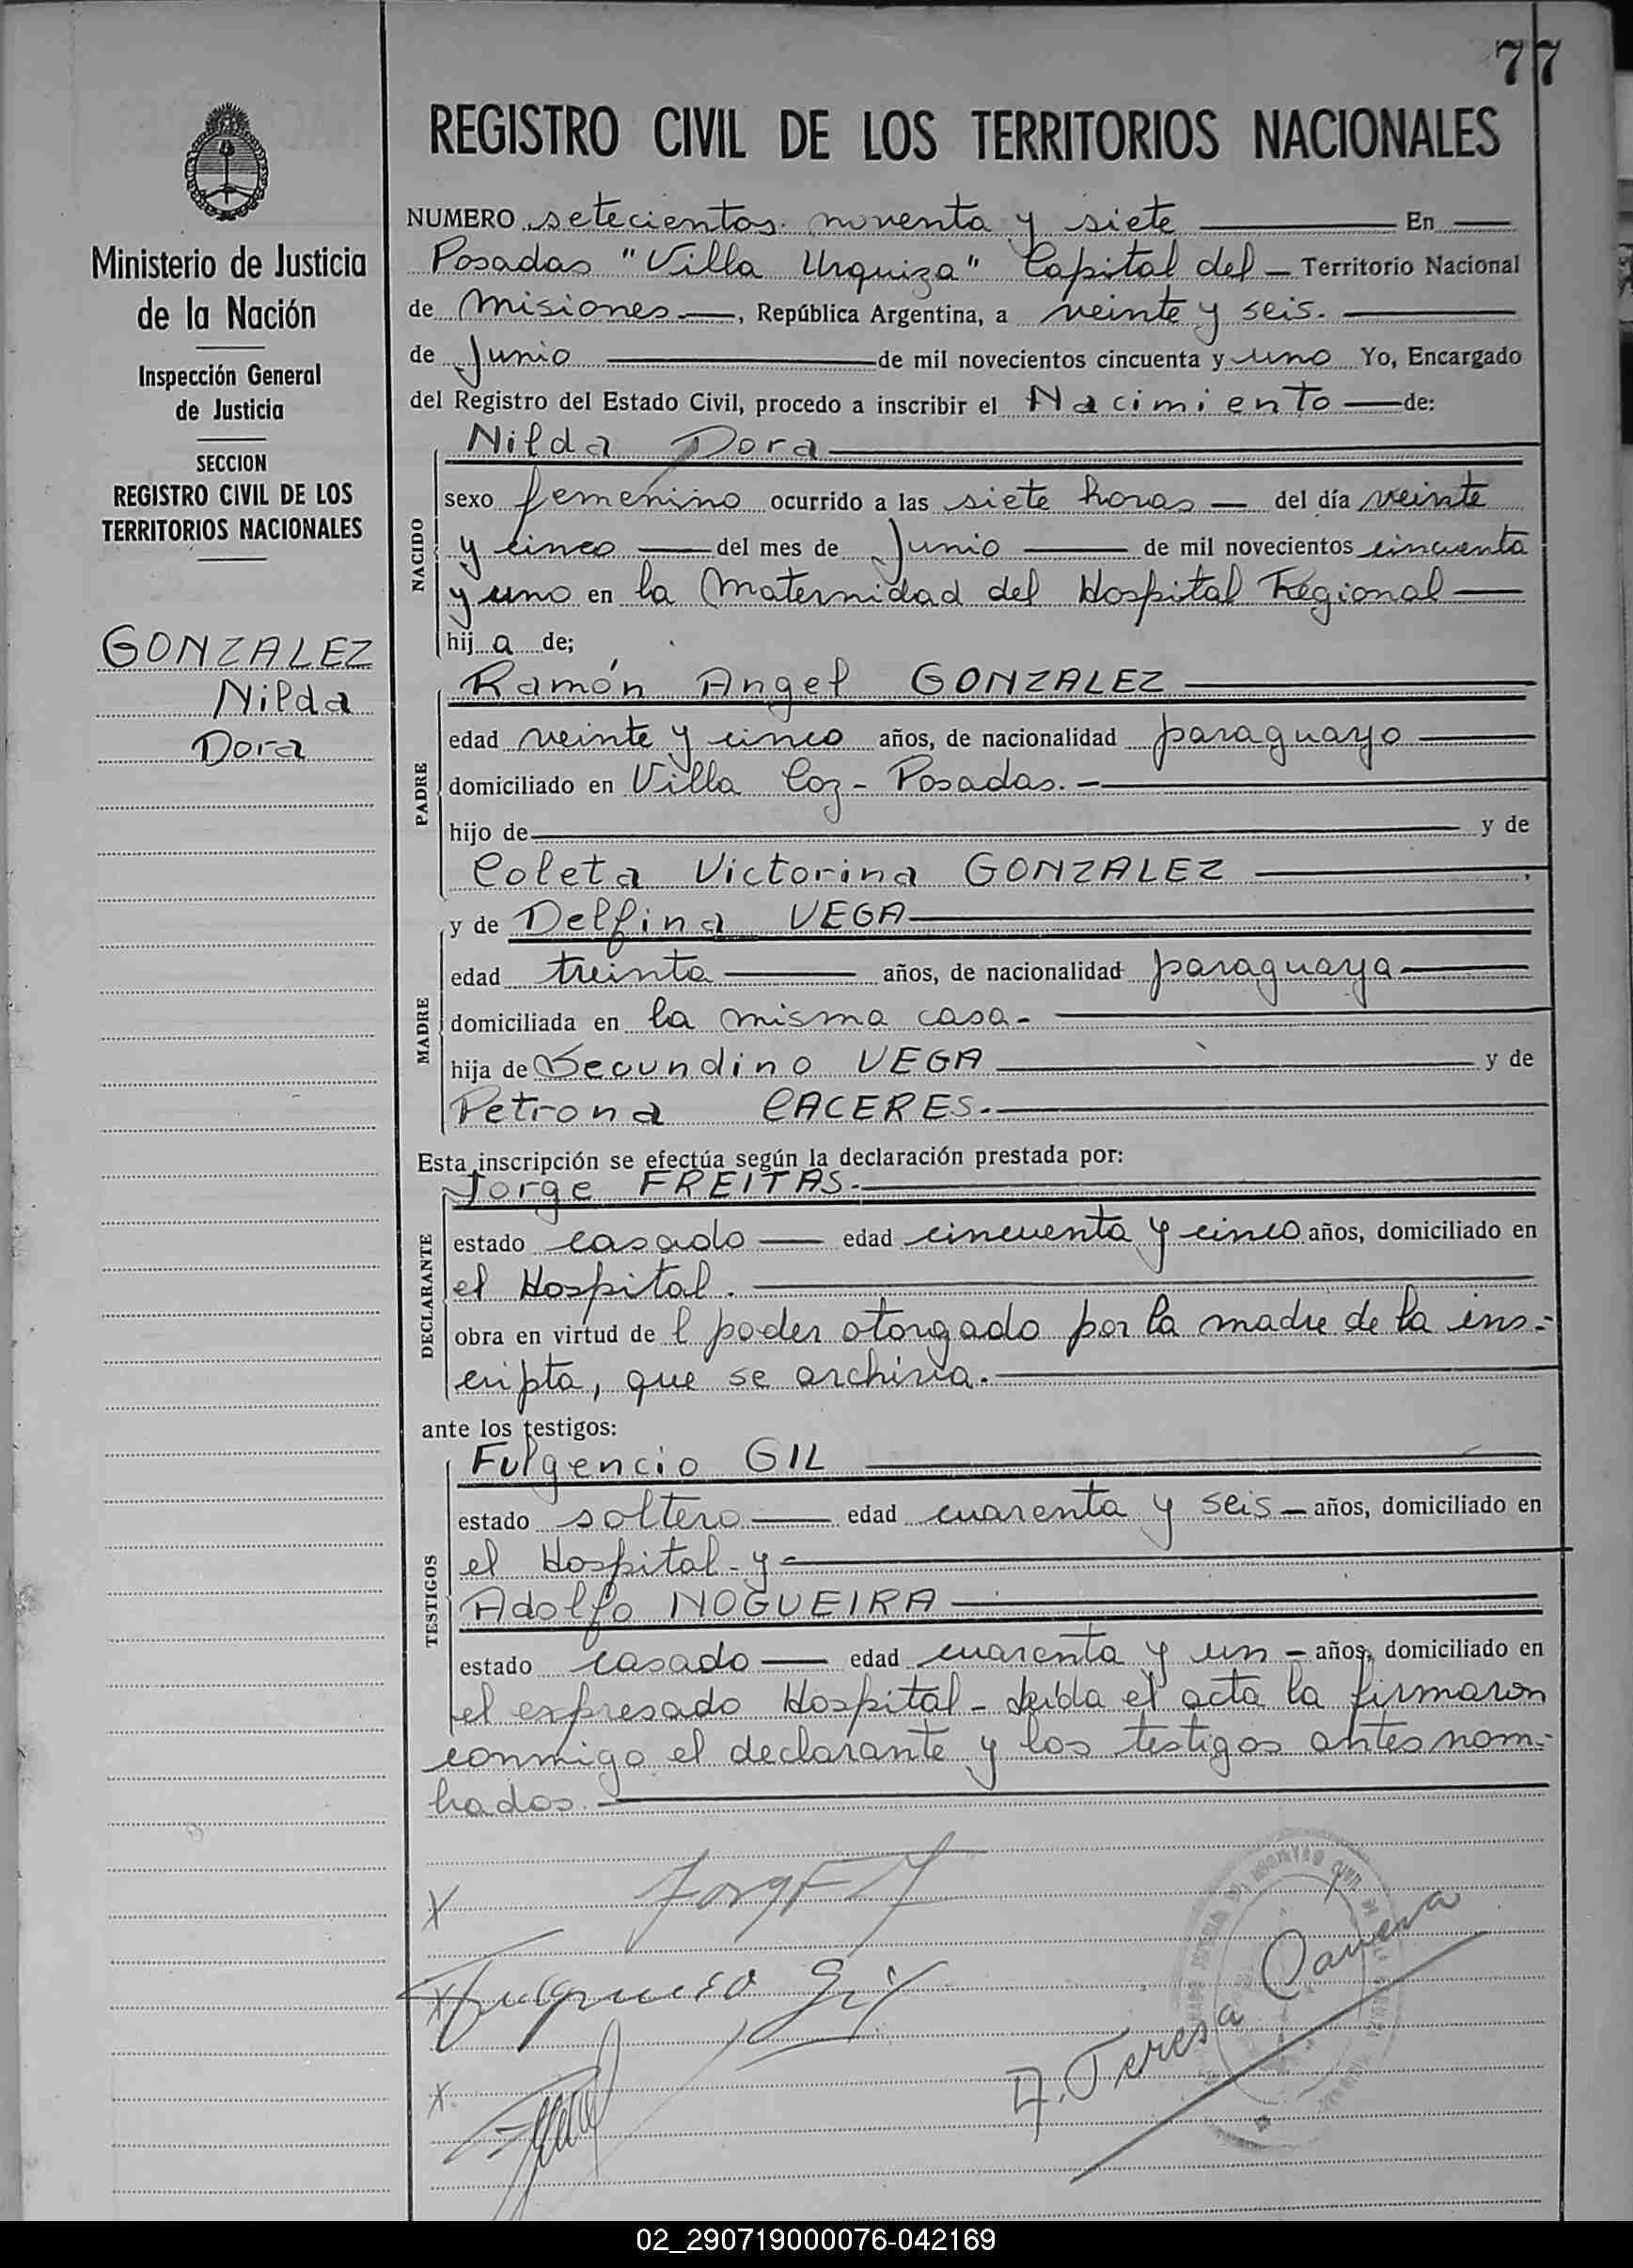 77
REGISTRO CIVIL DE LOS TERRITORIOS NACIONALES
Ministerio de Justicia
de la Nación
Inspección General
de Justicia
SECCION
REGISTRO CIVIL DE LOS
TERRITORIOS NACIONALES
GONZALEZ
Nilda
Dora
NUMERO setecientos noventa y siete En
Posadas "Villa Urquiza" Capital del Territorio Nacional
de Misiones, República Argentina, a veinte y seis.
de Junio de mil novecientos cincuenta y uno Yo, Encargado
del Registro del Estado Civil, procedo a inscribir el Nacimiento de:
Nilda Dora
NACIDO
sexo femenino ocurrido a las siete horas del día veinte
y cinco del mes de Junio de mil novecientos cincuenta
y uno en la Maternidad del Hospital Regional
hija de;
PADRE
Ramón Angel GONZALEZ
edad veinte y cinco años, de nacionalidad paraguayo
domiciliado en Villa Coz - Posadas. -
hijo de y de
Coleta Victorina GONZALEZ
MADRE
y de Delfina VEGA
edad treinta años, de nacionalidad paraguaya
domiciliada en la misma casa -
hija de Secundino VEGA y de
Petrona CACERES.-
Esta inscripción se efectúa según la declaración prestada por:
DECLARANTE
Jorge FREITAS.-
estado casado edad cincuenta y cinco años, domiciliado en
el Hospital.
obra en virtud del poder otorgado por la madre de la ins-
cripta, que se archiva.-
ante los testigos:
TESTIGOS
Fulgencio GIL
estado soltero edad cuarenta y seis años, domiciliado en
el Hospital - y -
Adolfo NOGUEIRA
estado casado edad cuarenta y un años, domiciliado en
el expresado Hospital - Leida el acta la firmaron
conmigo el declarante y los testigos antes nom-
brados.
X
X Fulgencio Gil
X.
A. Teresa
02_290719000076-042169